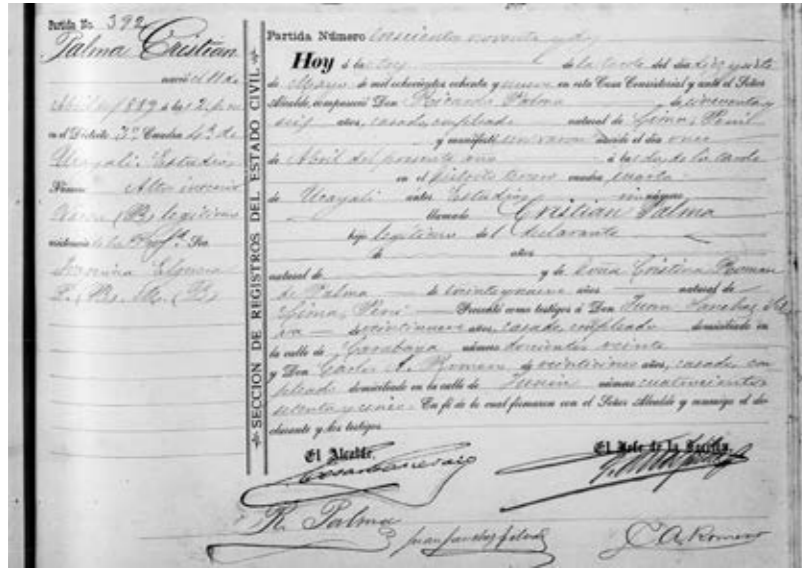 Partida No. 392
Palma Cristian
nació el 11 de
Abril de 1889 á las 2 p.m.
en el Distrito 3º Cuadra 4ª de
Ucayali. Estudios
Número Altos
Varon (B) legitimo
SECCION DE REGISTROS DEL ESTADO CIVIL
Partida Número trescientos noventa y dos
Hoy á las de la tarde del dia
de Mayo de mil ochocientos ochenta y nueve en esta Casa Consistorial y ante el Señor
Alcalde, compareció Don Ricardo Palma de cincuenta y
seis años, casado, empleado natural de Lima, Perú
y manifestó un varon nacido el dia once
de Abril del presente año á las dos de la tarde
en el distrito tercero cuadra cuarta
de Ucayali antes Estudios número
llamado Cristian Palma
hijo legitimo del declarante
de años
natural de y de Doña Cristina Roman
de Palma de veintinueve años natural de
Lima, Perú Presentó como testigos á Don Juan Sanchez Sil
va de años, casado, empleado domiciliado en
la calle de Carabaya número doscientos veinte
y Don Carlos A. Romero de años, casado, em
pleado domiciliado en la calle de Junin número cuatrocientos
setenta y cinco. En fé de lo cual firmaron con el Señor Alcalde y conmigo el de
clarante y los testigos
El Alcalde, El Jefe de la Sección,
R. Palma
C A. Romero